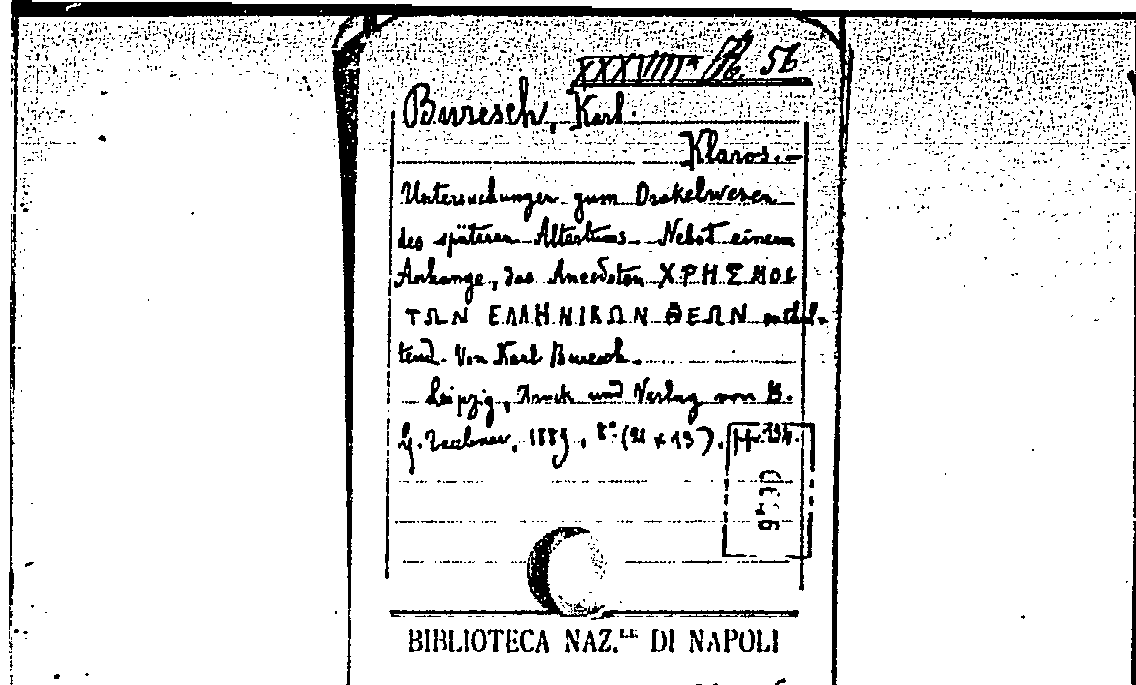 XXXVIII 56
Buresch, Karl.
Klaros.—
Untersuchungen zum Orakelwesen
des späteren Altertums. Nebst einem
Anhange, das Anecdoton ΧΡΗΣΜΟΙ
ΤΩΝ ΕΛΛΗΝΙΚΩΝ ΘΕΩΝ enthal-
tend. Von Karl Buresch.
Leipzig, Druck und Verlag von B.
G. Teubner, 1889, 8° (21 x 13). pp. 134.
BIBLIOTECA NAZ.LE DI NAPOLI